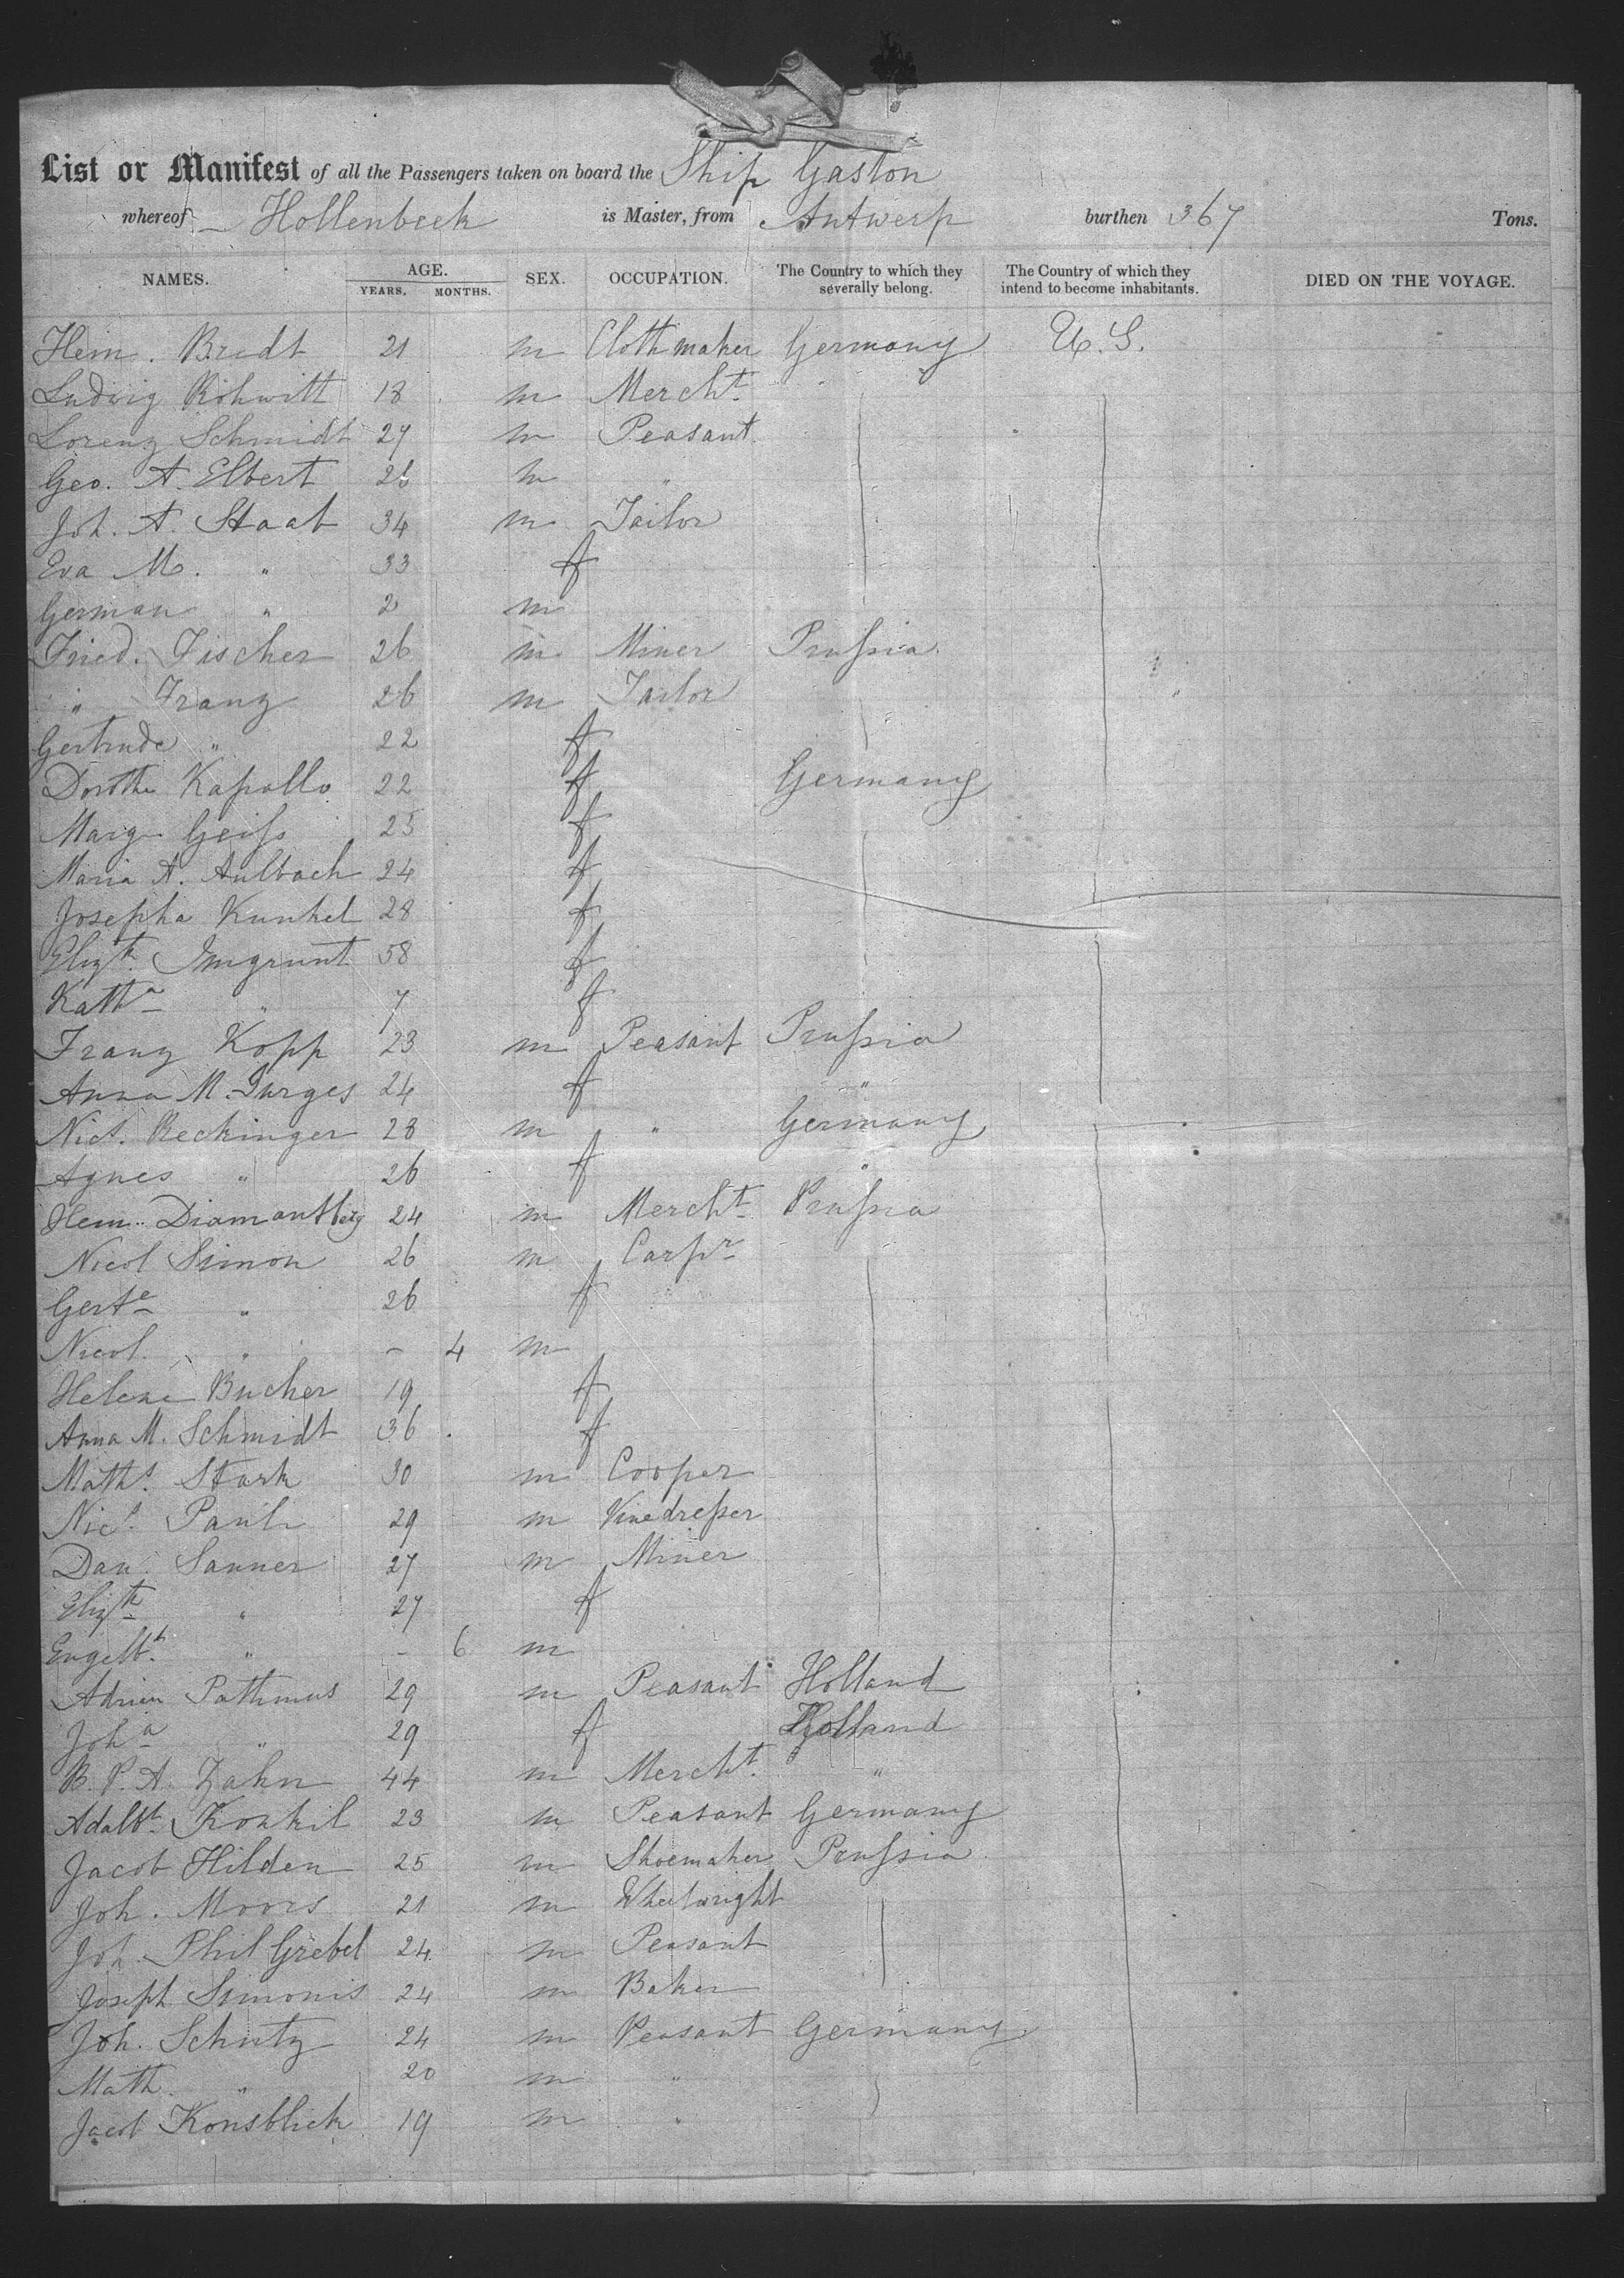 List or Manifest of all the Passengers taken on board the Ship Gaston
whereof Hollenbeck is Master, from Antwerp burthen 367 Tons.
NAMES. AGE. YEARS. MONTHS. SEX. OCCUPATION. The Country to which they severally belong. The Country of which they intend to become inhabitants. DIED ON THE VOYAGE.
Hein. Bredt 21 m Clothmaker Germany U.S.
Ludwig Rohwitt 18 m Mercht
Lorenz Schmidt 27 m Peasant
Geo. A. Elbert 28 m "
Joh. A. Staab 34 m Tailor
Eva M. " 33 f
German " 2 m
Fried. Fischer 26 m Miner Prussia
" Franz 26 m Tailor
Gertrude " 22 f
Dorothe Kapallo 22 f Germany
Marg Geiss 25 f
Maria A. Aulbach 24 f
Josepha Kunkel 28 f
Elizth Imgrunt 58 f
Katha " 7 f
Franz Kopp 23 m Peasant Prussia
Anna M. Jurges 24 f "
Nics. Reckinger 28 m " Germany
Agnes " 26 f "
Hein. Diamantberg 24 m Mercht Prussia
Nicol Simon 26 m Carpr
Gerte " 26 f
Nicol. " - 4 m
Helene Bucher 19 f
Anna M. Schmidt 36 f
Maths. Stark 30 m Cooper
Nics. Pauli 29 m Vinedresser
Dan. Sanner 27 m Miner
Elizth " 27 f
Engelbt. " - 6 m
Adrien Pathmus 29 m Peasant Holland
Joha " 29 f Holland
B. P. A. Zahn 44 m Mercht. "
Adalbt. Konkil 23 m Peasant Germany
Jacob Hilden 25 m Shoemaker Prussia
Joh. Moors 21 m Wheelwright
Joh. Phil Grebel 24 m Peasant
Joseph Simonis 24 m Baker
Joh. Schutz 24 m Peasant Germany
Math. " 20 m "
Jacob Konsblick 19 m "